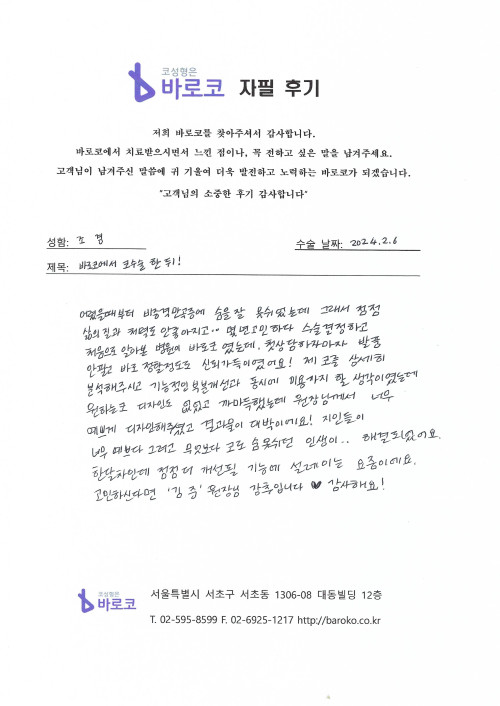 코성형은
바로코 자필 후기
저희 바로코를 찾아주셔서 감사합니다.
바로코에서 치료받으시면서 느낀 점이나, 꼭 전하고 싶은 말을 남겨주세요.
고객님이 남겨주신 말씀에 귀 기울여 더욱 발전하고 노력하는 바로코가 되겠습니다.
"고객님의 소중한 후기 감사합니다"
성함: 조 경 수술 날짜: 2024.2.6
제목: 바로코에서 코수술 한 뒤!
어렸을때부터 비중격만곡증에 숨을 잘 못쉬었는데 그래서 점점
삶의 질과 체력도 안좋아지고.. 몇년고민하다 수술결정하고
처음으로 알아본 병원이 바로코 였는데. 첫상담하자마자 발품
안팔고 바로 정할정도로 신뢰가득이였어요! 제 코를 상세히
분석해주시고 기능적인 부분개선과 동시에 미용까지 할 생각이였는데
원하는코 디자인도 없었고 까마득했는데 원장님께서 너무
예쁘게 디자인해주셨고 결과물이 대박이에요! 지인들이
너무 예쁘다 그러고 무엇보다 코로 숨못쉬던 인생이.. 해결되었어요.
한달차인데 점점 더 개선될 기능에 설레이는 요즘이에요.
고민하신다면 '김 준' 원장님 강추입니다 ♥ 감사해요!
코성형은
바로코
서울특별시 서초구 서초동 1306-08 대동빌딩 12층
T. 02-595-8599 F. 02-6925-1217 http://baroko.co.kr